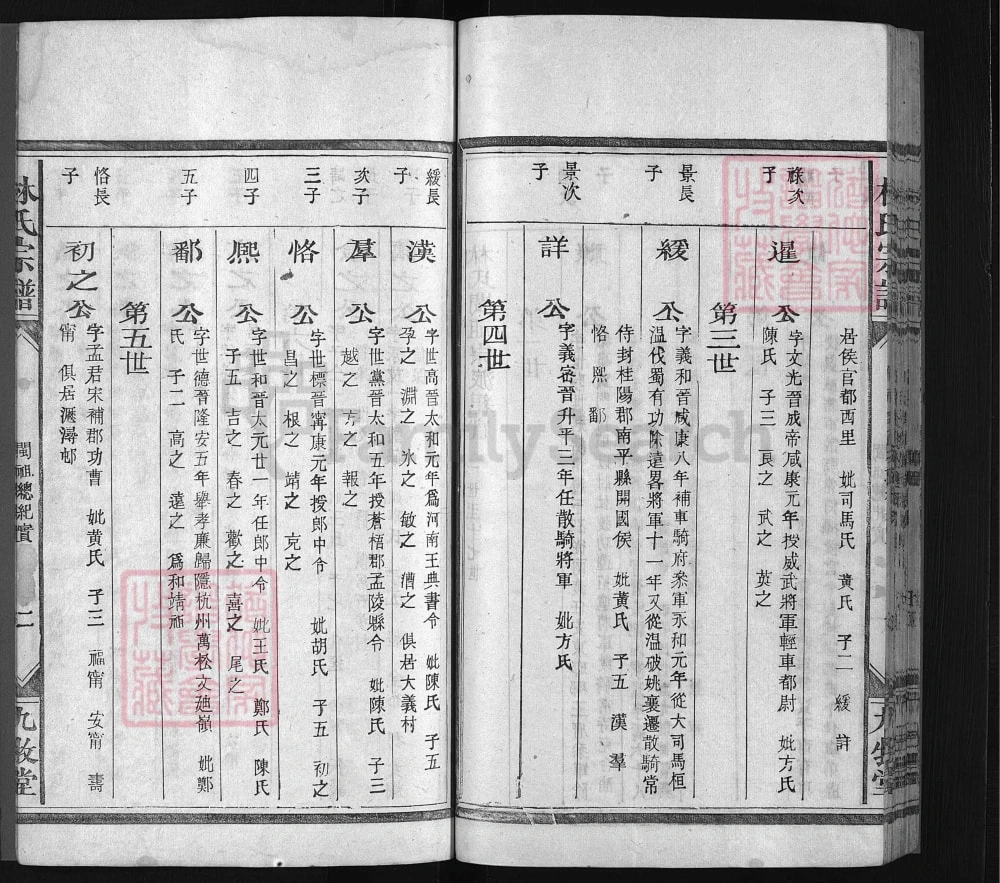 居侯官都西里 妣司馬氏 黃氏 子二 緩 詳
祿次子
暹公 字文光晉成帝咸康元年授威武將軍輕車都尉 妣方氏
陳氏 子三 良之 武之 英之
第三世
景長子
緩公 字義和晉咸康八年補車騎府叅軍永和元年從大司馬桓
溫伐蜀有功除遠畧將軍十一年又從溫破姚襄遷散騎常
侍封桂陽郡南平縣開國侯 妣黃氏 子五 漢 羣
恪 熈 鄱
景次子
詳公 字義密晉升平三年任散騎將軍 妣方氏
第四世
緩長子
漢公 字世高晉太和元年爲河南王典書令 妣陳氏 子五
孕之 淵之 氷之 敏之 漕之 俱居大義村
次子
羣公 字世黨晉太和五年授蒼梧郡孟陵縣令 妣陳氏 子三
越之 方之 報之
三子
恪公 字世標晉甯康元年授郎中令 妣胡氏 子五 初之
昌之 根之 靖之 克之
四子
熈公 字世和晉太元廿一年任郎中令 妣王氏 鄭氏 陳氏
子五 吉之 春之 歡之 喜之 尾之
五子
鄱公 字世德晉隆安五年舉孝廉歸隱杭州萬松文廸嶺 妣鄭
氏 子二 高之 遠之 爲和靖祖
第五世
恪長子
初之公 字孟君宋補郡功曹 妣黃氏 子三 福甯 安甯 壽
甯 俱居㵧潯邨
林氏宗譜
閩祖總紀實
二
九牧堂
FamilySearch